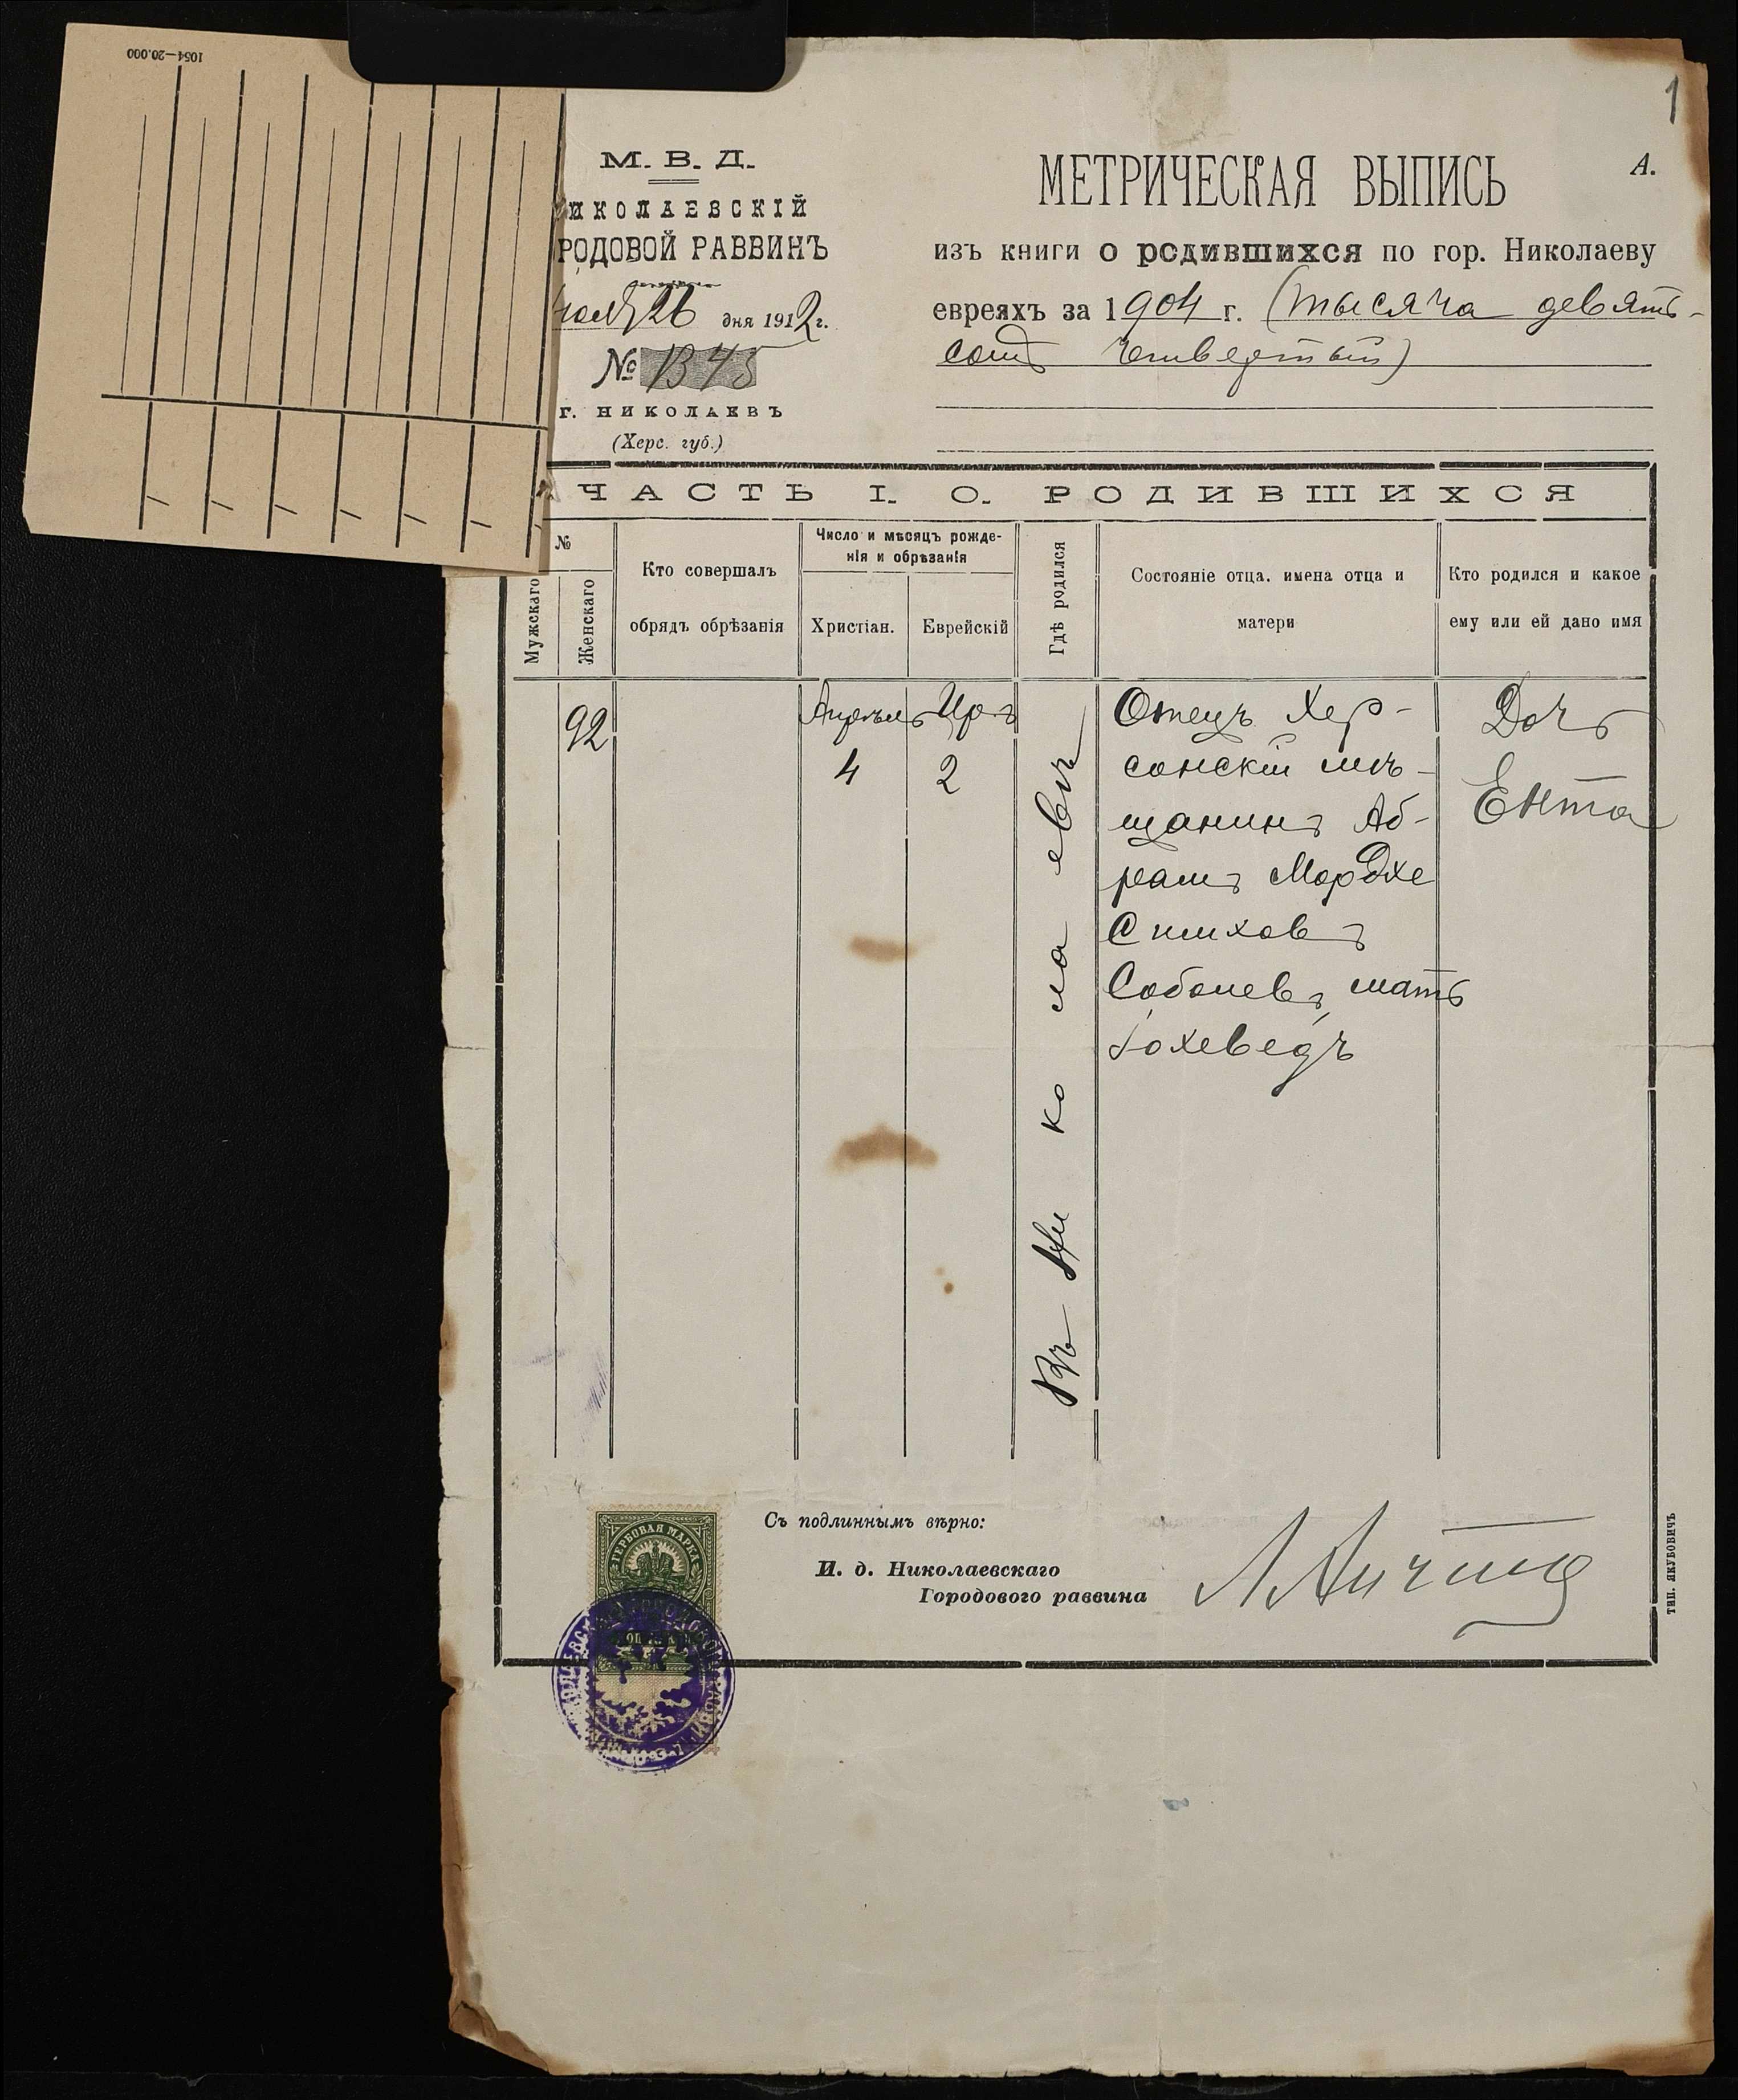 1054—20.000
1
М. В. Д.
ИКОЛАЕВСКІЙ
РОДОВОЙ РАВВИНЪ
26 дня 1912 г.
№ 1345
г. НИКОЛАЕВЪ
(Херс. губ.)
А.
МЕТРИЧЕСКАЯ ВЫПИСЬ
изъ книги о родившихся по гор. Николаеву
евреяхъ за 1904 г. (тысяча девять-
сотъ четвертый)
ЧАСТЬ I. О. РОДИВШИХСЯ
№
Мужскаго
Женскаго
Кто совершалъ
обрядъ обрѣзанія
Число и мѣсяцъ рожде-
нія и обрѣзанія
Христіан.
Еврейскій
Гдѣ родился
Состояніе отца. имена отца и
матери
Кто родился и какое
ему или ей дано имя
92
Апрѣль
4
Іръ
2
Въ Николаевѣ
Отецъ Хер-
сонскій мѣ-
щанинъ Аб-
рамъ Мордхе
Симховъ
Соболевъ, мать
Іохеведъ
Дочь
Ента
ГЕРБОВАЯ МАРКА
Съ подлиннымъ вѣрно:
И. д. Николаевскаго
Городового раввина
ТИП. ЯКУБОВИЧЪ